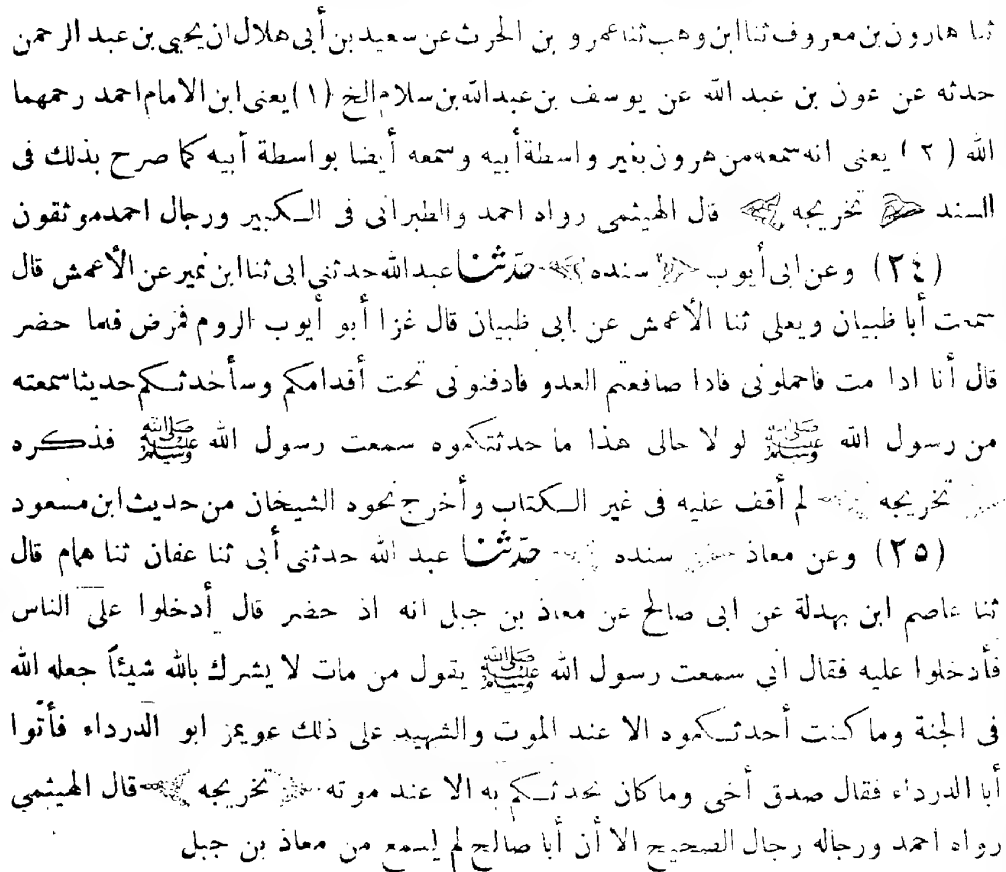 ثنا هارون بن معروف ثنا ابن وهب ثنا عمرو بن الحرث عن سعيد بن أبى هلال ان يحيى بن عبد الرحمن
حدثه عن عون بن عبد الله عن يوسف بن عبد الله بن سلام الخ (١) يعنى ابن الامام احمد رحمهما
الله (٢) يعنى انه سمعه من هرون بغير واسطة أبيه وسمعه أيضا بواسطة أبيه كما صرح بذلك فى
السند ﴿ تخريجه ﴾ قال الهيثمى رواه احمد والطبرانى فى الكبير ورجال احمد موثقون
(٢٤) وعن ابى أيوب ﴿ سنده ﴾ حدثنا عبد الله حدثنى ابى ثنا ابن نمير عن الأعمش قال
سمعت أبا ظبيان ويعلى ثنا الأعمش عن ابى ظبيان قال غزا أبو أيوب الروم فمرض فلما حضر
قال أنا اذا مت فاحملونى فاذا صاففتم العدو فادفنونى تحت أقدامكم وسأحدثكم حديثا سمعته
من رسول الله ﷺ لو لا حالى هذا ما حدثتكموه سمعت رسول الله ﷺ فذكره
﴿ تخريجه ﴾ لم أقف عليه فى غير الكتاب وأخرج نحوه الشيخان من حديث ابن مسعود
(٢٥) وعن معاذ ﴿ سنده ﴾ حدثنا عبد الله حدثنى أبى ثنا عفان ثنا همام قال
ثنا عاصم ابن بهدلة عن ابى صالح عن معاذ بن جبل انه اذ حضر قال أدخلوا علىّ الناس
فأدخلوا عليه فقال انى سمعت رسول الله ﷺ يقول من مات لا يشرك بالله شيئاً جعله الله
فى الجنة وما كنت أحدثكموه الا عند الموت والشهيد على ذلك عويمر ابو الدرداء فأتوا
أبا الدرداء فقال صدق أخى وما كان يحدثكم به الا عند موته ﴿ تخريجه ﴾ قال الهيثمى
رواه احمد ورجاله رجال الصحيح الا أن أبا صالح لم يسمع من معاذ بن جبل